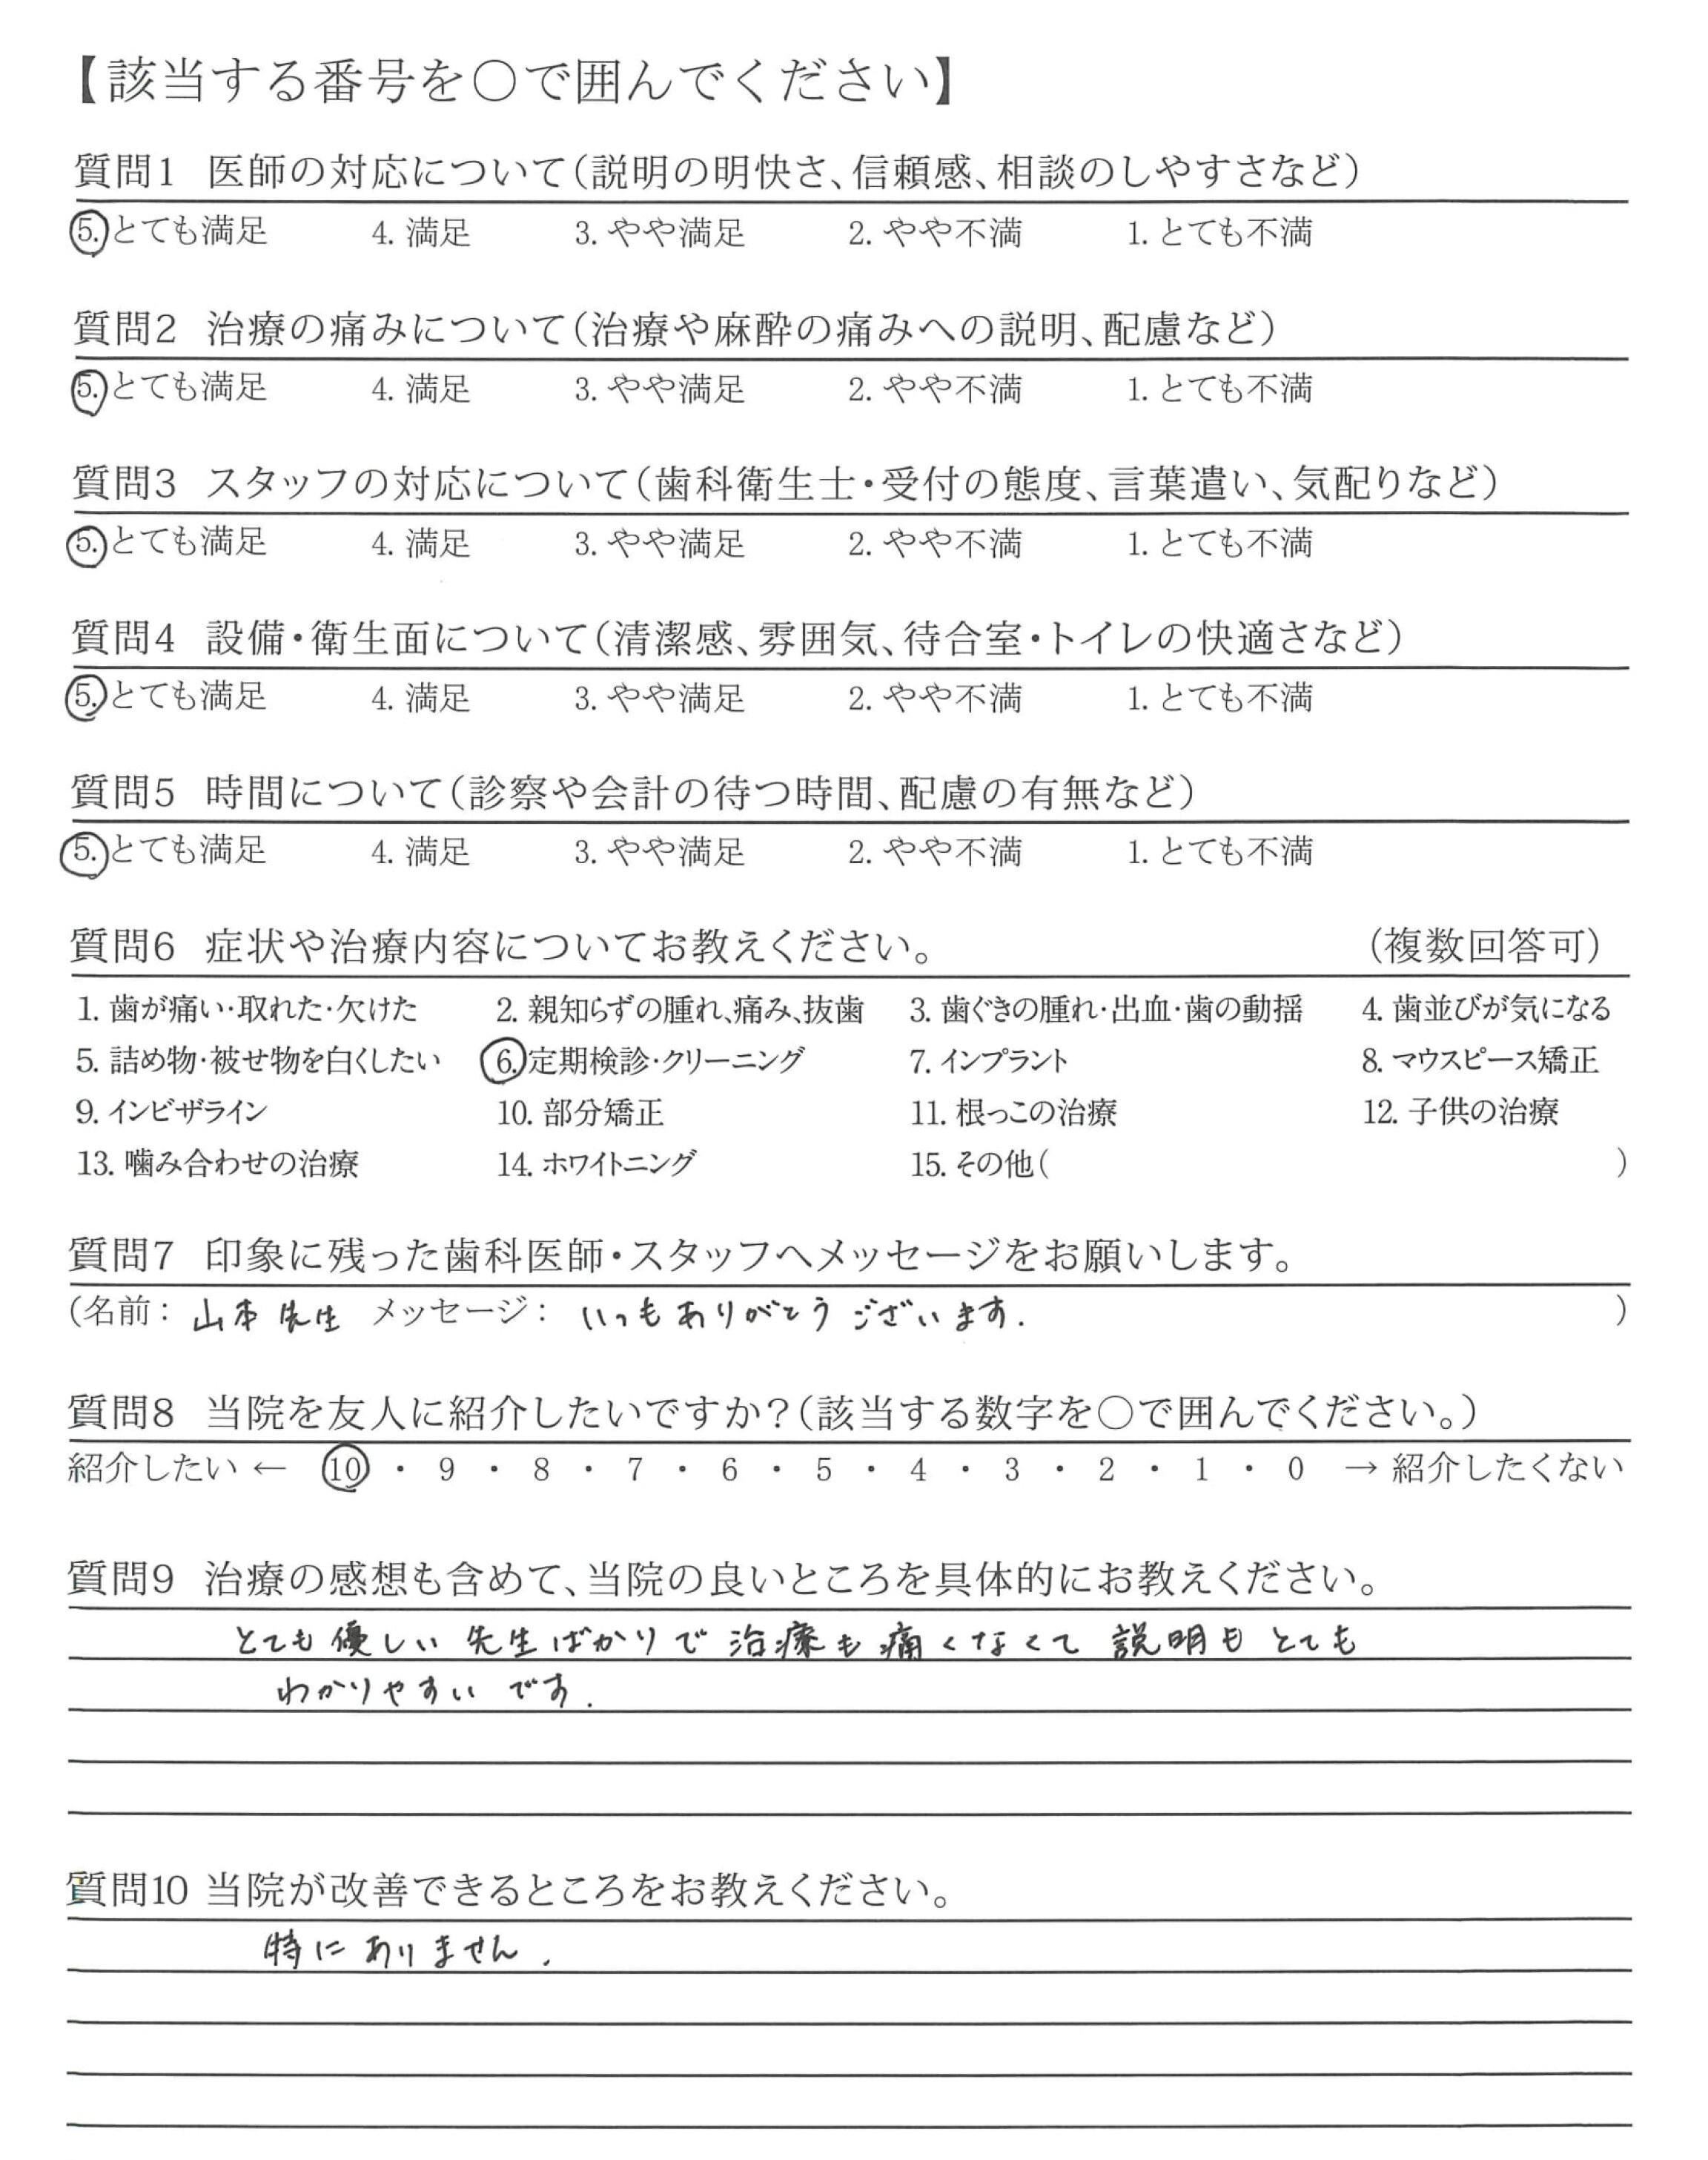 【該当する番号を○で囲んでください】
質問1 医師の対応について(説明の明快さ、信頼感、相談のしやすさなど)
5. とても満足 4. 満足 3. やや満足 2. やや不満 1. とても不満
質問2 治療の痛みについて(治療や麻酔の痛みへの説明、配慮など)
5. とても満足 4. 満足 3. やや満足 2. やや不満 1. とても不満
質問3 スタッフの対応について(歯科衛生士・受付の態度、言葉遣い、気配りなど)
5. とても満足 4. 満足 3. やや満足 2. やや不満 1. とても不満
質問4 設備・衛生面について(清潔感、雰囲気、待合室・トイレの快適さなど)
5. とても満足 4. 満足 3. やや満足 2. やや不満 1. とても不満
質問5 時間について(診察や会計の待つ時間、配慮の有無など)
5. とても満足 4. 満足 3. やや満足 2. やや不満 1. とても不満
質問6 症状や治療内容についてお教えください。 (複数回答可)
1. 歯が痛い・取れた・欠けた 2. 親知らずの腫れ、痛み、抜歯 3. 歯ぐきの腫れ・出血・歯の動揺 4. 歯並びが気になる
5. 詰め物・被せ物を白くしたい 6. 定期検診・クリーニング 7. インプラント 8. マウスピース矯正
9. インビザライン 10. 部分矯正 11. 根っこの治療 12. 子供の治療
13. 噛み合わせの治療 14. ホワイトニング 15. その他( )
質問7 印象に残った歯科医師・スタッフへメッセージをお願いします。
(名前: 山本先生 メッセージ: いつもありがとうございます. )
質問8 当院を友人に紹介したいですか?(該当する数字を○で囲んでください。)
紹介したい ← 10 ・ 9 ・ 8 ・ 7 ・ 6 ・ 5 ・ 4 ・ 3 ・ 2 ・ 1 ・ 0 → 紹介したくない
質問9 治療の感想も含めて、当院の良いところを具体的にお教えください。
とても優しい先生ばかりで治療も痛くなくて説明もとても
わかりやすいです.
質問10 当院が改善できるところをお教えください。
特にありません.